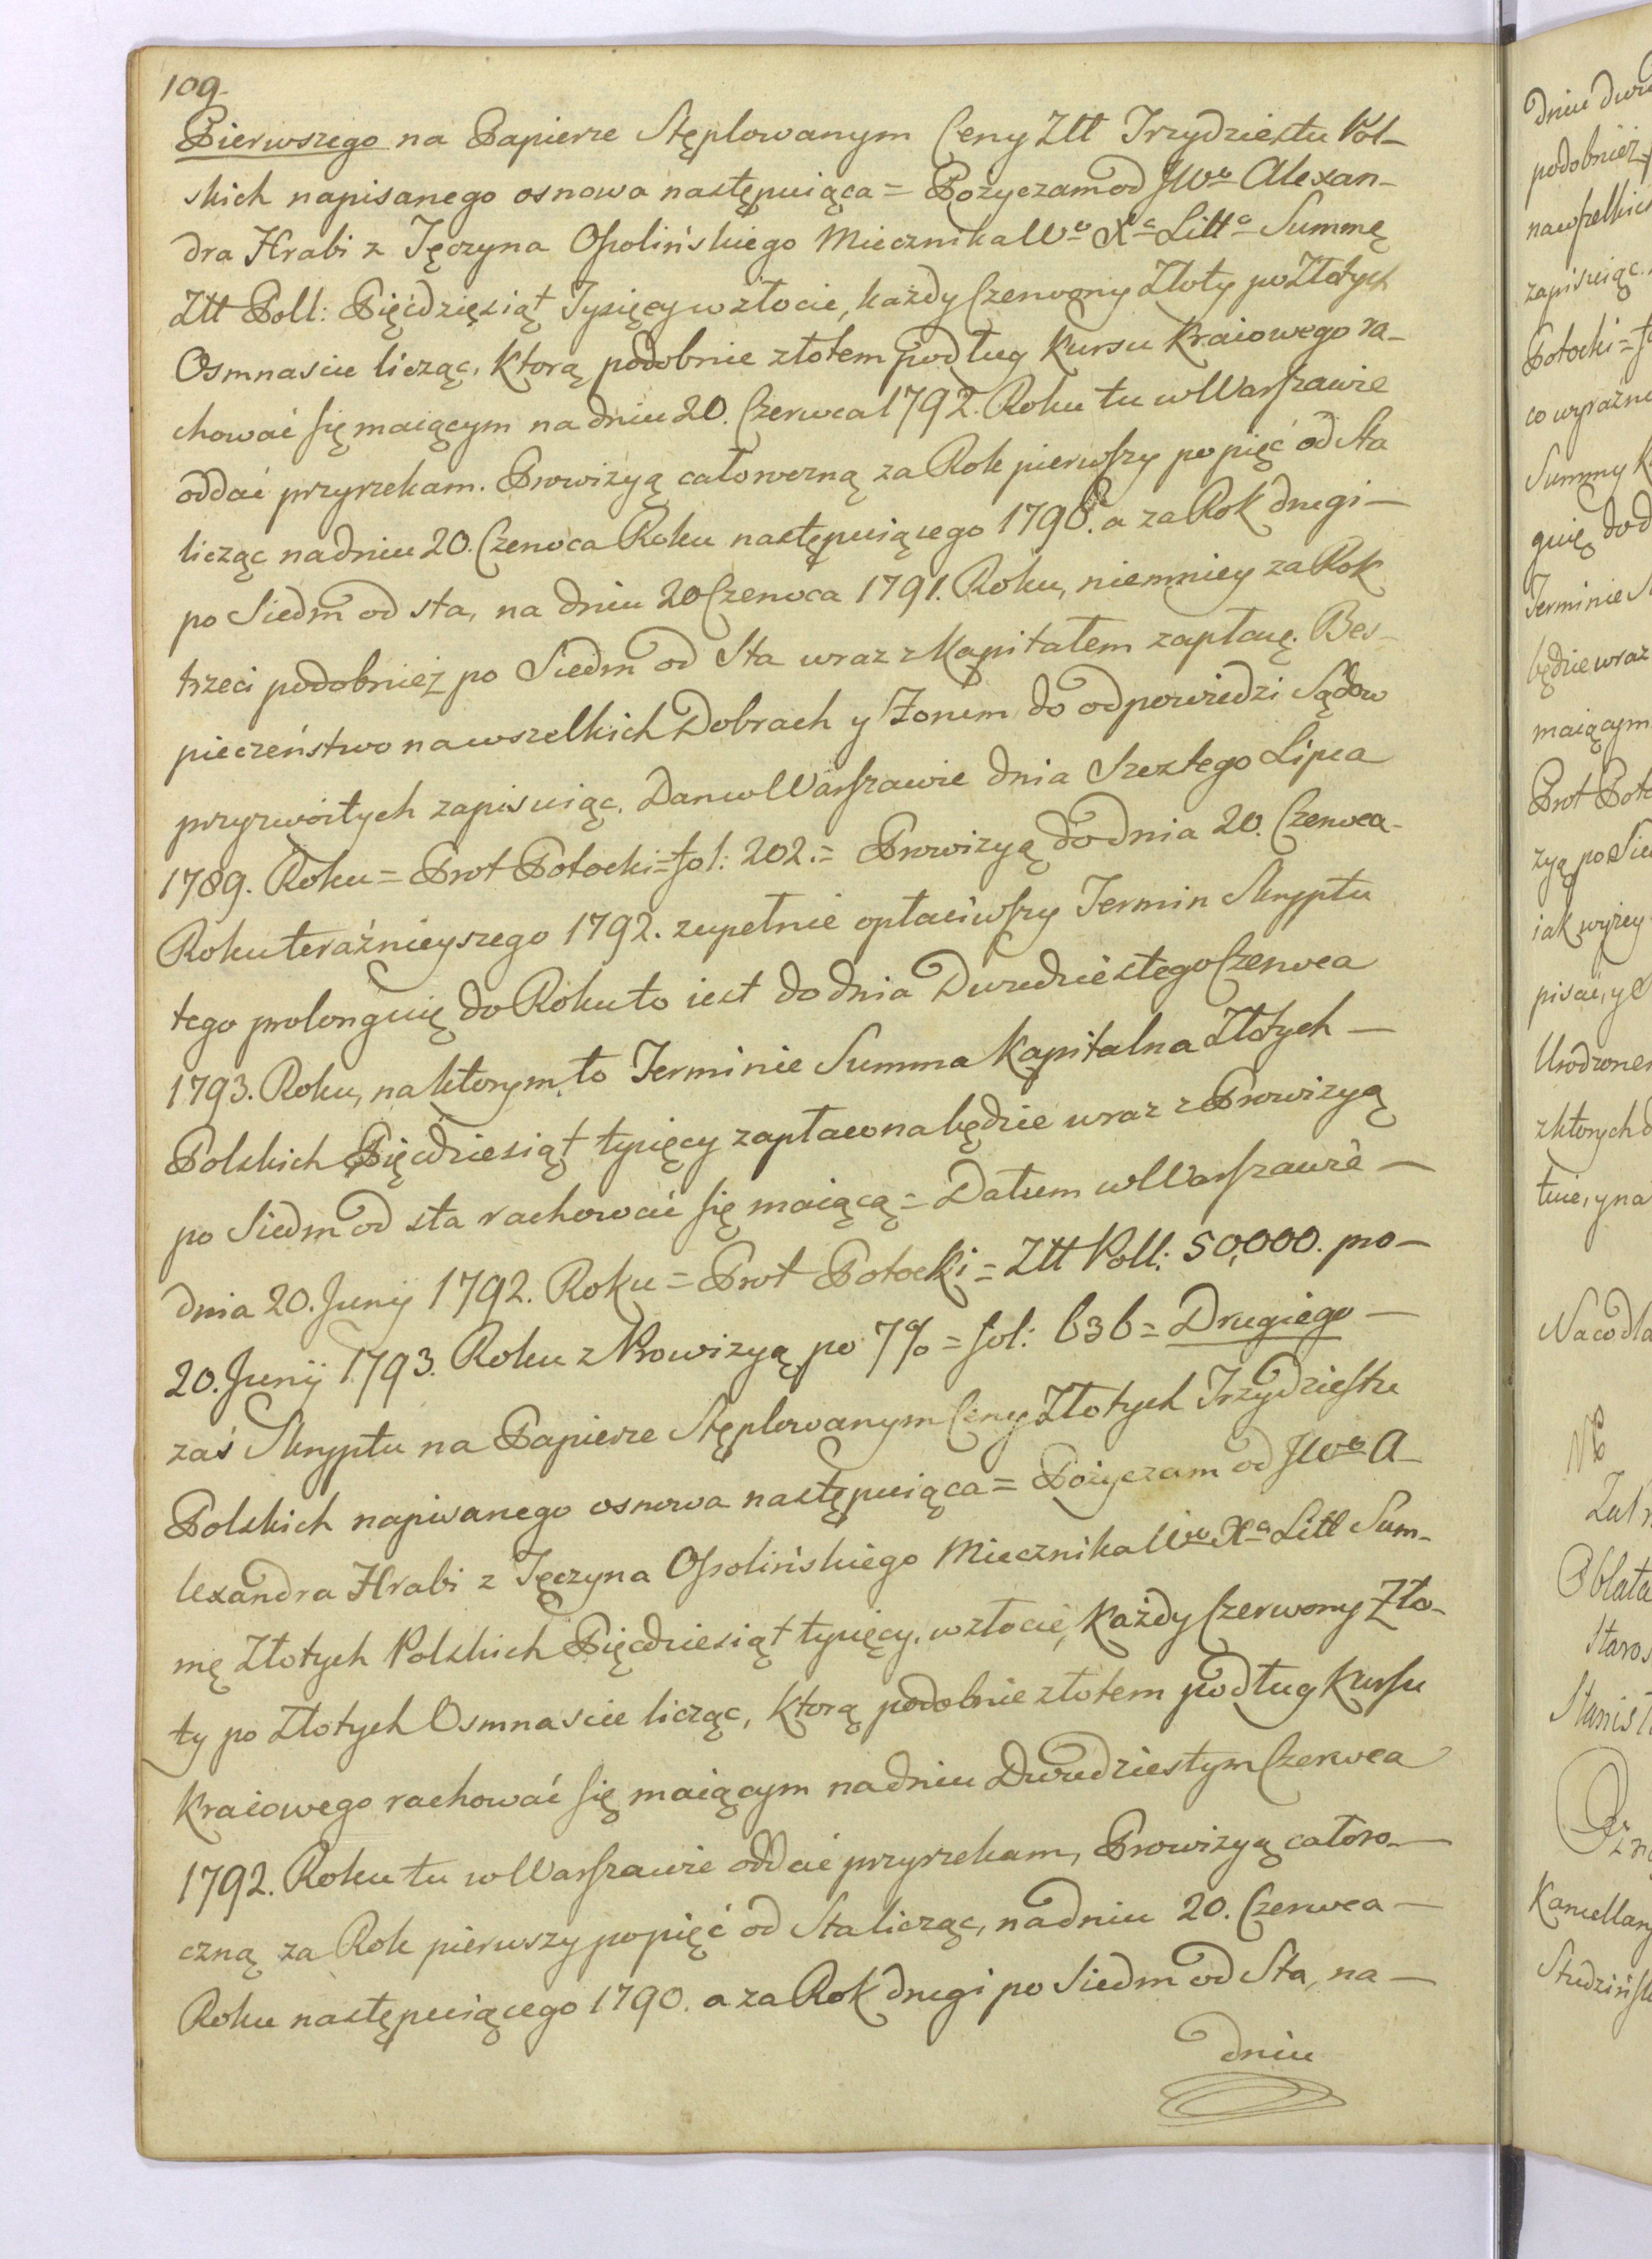 109.
Pierwszego na Papierze Stęplowanym Ceny Ztt Trzydziestu Pol-
skich napisanego osnowa następuiąca = Pożyczam od JWo Alexan-
dra Hrabi z Tęczyna Ossolińskiego Miecznika Wo Xa Litto Summę
Ztt Poll: Pięćdziesiąt Tysięcy w złocie, każdy Czerwony Złoty po Złotych
Osmnascie licząc, Ktorą podobnie złotem podług Kursu Kraiowego ra-
chować się maiącym na dniu 20. Czerwca 1792. Roku tu w Warszawie
oddać przyrzekam. Prowizyą całoroczną za Rok pierwszy po pięć od Sta
licząc na dniu 20. Czerwca Roku następuiącego 1790. a za Rok drugi —
po Siedm od sta, na dniu 20 Czerwca 1791. Roku, niemniey za Rok
trzeci podobnież po Siedm od Sta wraz z Kapitałem zapłacę. Bes-
pieczeństwo na wszelkich Dobrach y Forum do odpowiedzi Sądow
przyzwoitych zapisuiąc. Dan w Warszawie dnia Szostego Lipca
1789. Roku = Prot Potocki = fol: 202. = Prowizyą do dnia 20. Czerwca -
Roku teraźnieyszego 1792. zupełnie opłaciwszy Termin Skryptu
tego prolonguię do Roku to iest do dnia Dwudziestego Czerwca
1793. Roku, na ktorym to Terminie Summa Kapitalna Złotych —
Polskich Pięćdziesiąt tysięcy zapłacona będzie wraz z Prowizyą
po Siedm od sta rachować się maiącą = Datum w Warszawie —
dnia 20. Junÿ 1792. Roku = Prot Potocki = Ztt Poll: 50,000. pro —
20. Junÿ 1793. Roku z Prowizyą po 7% = fol: 636 = Drugiego —
zaś Skryptu na Papierze Stęplowanym Ceny Złotych Trzydziestu
Polskich napisanego osnowa następuiąca = Pożyczam od JWo A-
lexandra Hrabi z Tęczyna Ossolińskiego Miecznika Wo Xa Litt Sum-
mę Złotych Polskich Pięćdziesiąt tysięcy, w złocie, Każdy Czerwony Zło-
ty po Złotych Osmnascie licząc, Ktorą podobnie złotem podług Kursu
Kraiowego rachować się maiącym na dniu Dwudziestym Czerwca
1792. Roku tu w Warszawie oddać przyrzekam, Prowizyą całoro-
czną za Rok pierwszy po pięć od Sta licząc, na dniu 20. Czerwca —
Roku następuiącego 1790. a za Rok drugi po Siedm od Sta, na —
dniu
podobnież
zapisuiąc.
Potocki =
Summy
Terminie
będzie wraz
maiącym
iak wyżey
Oblata